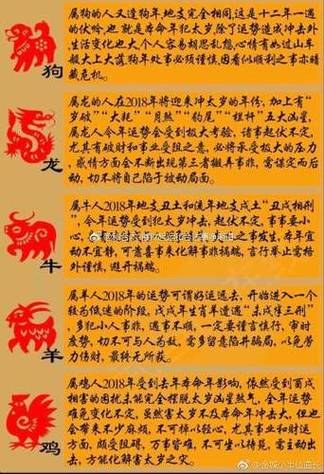 属狗的人又逢狗年,地支完全相同,这是十二年一遇
的伏吟,也就是本命年犯太岁,除了运势造成冲击外,
生活变化也大,个人容易胡思乱想,心情有如过山车
般大上大落,狗年处事必须谨慎,因看似顺利之事亦暗
藏危机。
狗
属龙的人在2018年将迎来冲太岁的年份,加上有"
岁破""大耗""月煞""豹尾""栏杆"五大凶星,
属龙人今年运势会受到极大考验,诸事起伏不定,
尤其有破财和事业受阻之意,必将承受极大的压力
,感情方面会不断出现第三者搬弄事非,需谋定而后
动,切不将自己陷于被动局面。
龙
属牛人2018年地支丑土和流年地支戌土"丑戌相刑"
,今年运势受到犯太岁冲击,起伏不定,事事要小
之事发生,本年宜
动不宜静,可靠喜事来化解事非祸端,言行举止需格
外谨慎,避开祸端。
牛
属羊人2018年的运势可谓好运退去,开始进入一个
较为低迷的阶段,戊戌年生肖羊遭遇"未戌半三刑"
,多犯小人事非,遇事不顺,一定要谨言慎行,审时
度势,切不可与人为敌,需多留意陷井骗局,以免劳
力伤财,最终无所获。
羊
属鸡人2018年受到去年本命年影响,依然受到酉戌
相害的困扰,未能完全摆脱太岁凶星煞气,全年运
势难免变化不定,虽然害太岁不及本命年冲击大,但也
会带来不少麻烦,不可掉以轻心,尤其事业和财运
方面,颇受阻碍,万事皆难,不可坐以待毙,需主动出
击,方能化解害太岁之灾。
鸡